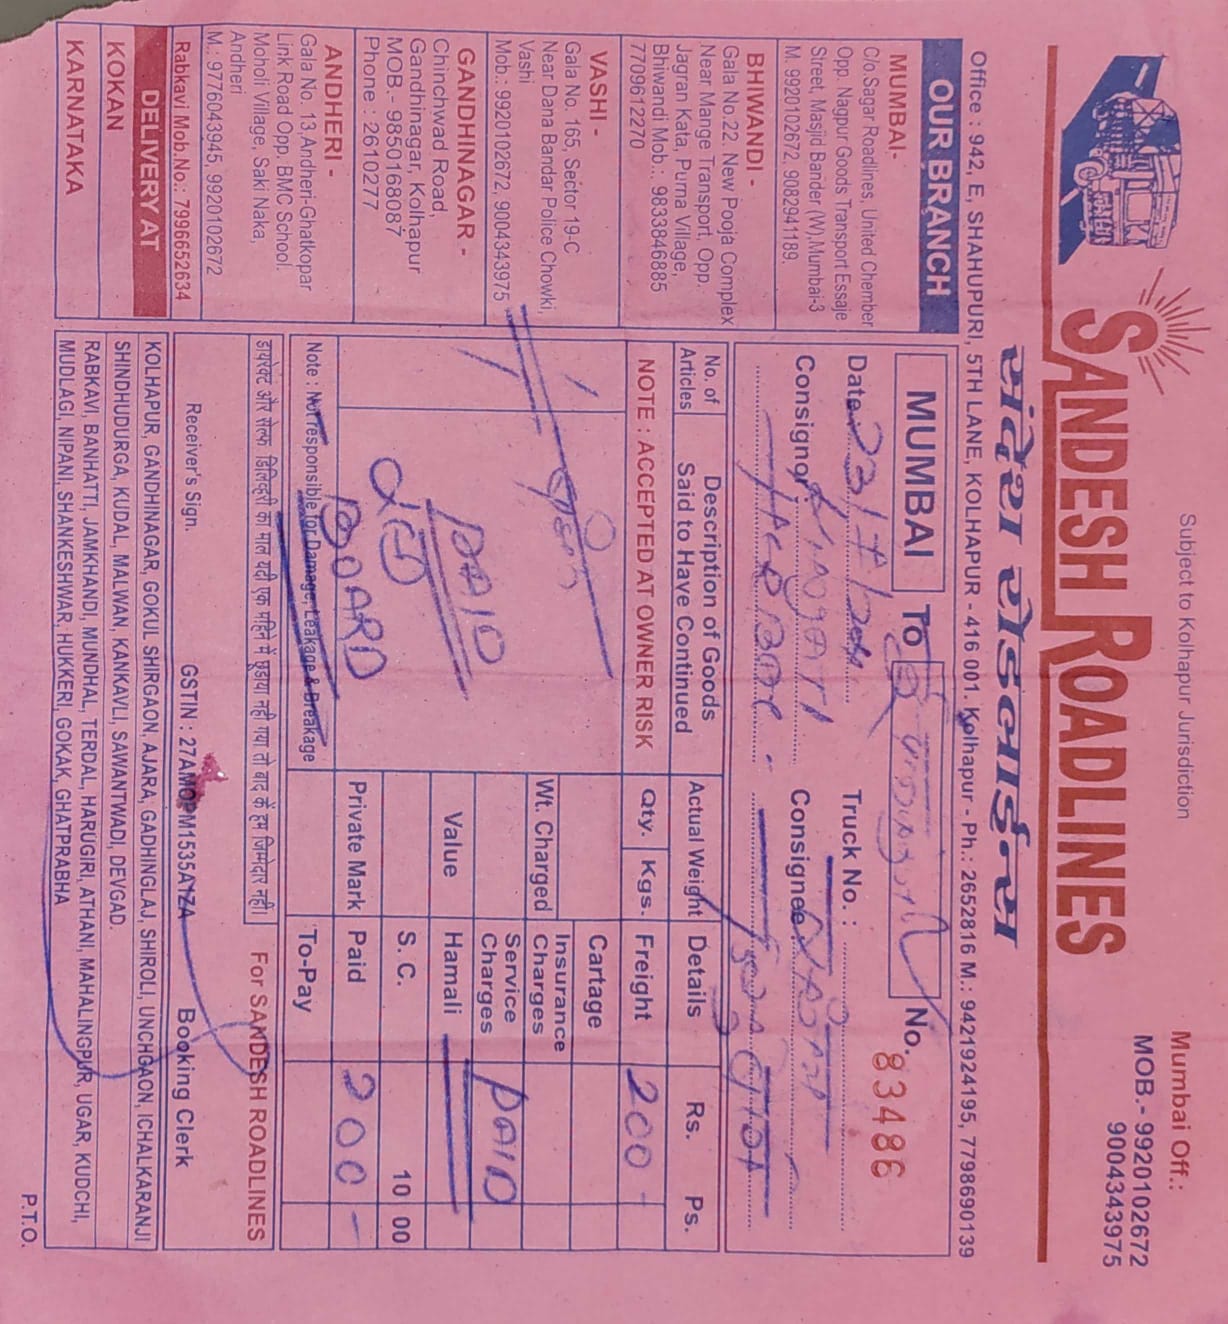 Subject to Kolhapur Jurisdiction
Mumbai Off.:
MOB.- 9920102672
9004343975
SANDESH ROADLINES
संदेश रोडलाईन्स
Office : 942, E, SHAHUPURI, 5TH LANE, KOLHAPUR - 416 001. Kolhapur - Ph.: 2652816 M.: 9421924195, 7798690139
OUR BRANCH
MUMBAI-
C/o.Sagar Roadlines, United Chember
Opp. Nagpur Goods Transport Essaje
Street, Masjid Bander (W),Mumbai-3
M. 9920102672, 9082941189.
BHIWANDI -
Gala No.22. New Pooja Complex
Near Mange Transport, Opp.
Jagran Kata, Purna Village,
Bhiwandi Mob.: 9833846885
7709612270
VASHI -
Gala No. 165, Sector 19-C
Near Dana Bandar Police Chowki,
Vashi
Mob.: 9920102672, 9004343975
GANDHINAGAR -
Chinchwad Road,
Gandhinagar, Kolhapur
MOB.- 9850168087
Phone : 2610277
ANDHERI -
Gala No. 13,Andheri-Ghatkopar
Link Road Opp. BMC School.
Moholi Village, Saki Naka,
Andheri
M.: 9776043945, 9920102672
Rabkavi Mob.No.: 7996652634
DELIVERY AT
KOKAN
KARNATAKA
MUMBAI To No. 83486
Date 23/7 Truck No. :
Consignor Consignee
No. of Articles Description of Goods Said to Have Continued Actual Weight Details Rs. Ps.
NOTE : ACCEPTED AT OWNER RISK Qty. Kgs. Freight 200
Cartage
Wt. Charged Insurance Charges
Service Charges PAID
PAID Value Hamali
S. C. 10 00
BOARD Private Mark Paid 200 -
Note : Not responsible for Damage, Leakage & Breakage To-Pay
डायरेक्ट और सेल्फ डिलिव्हरी का माल यदी एक महिने में छुडाया नही गया तो बाद के हम जिम्मेदार नही।
For SANDESH ROADLINES
Receiver's Sign. GSTIN : 27AMOPM1535A1ZA Booking Clerk
KOLHAPUR, GANDHINAGAR, GOKUL SHIRGAON, AJARA, GADHINGLAJ, SHIROLI, UNCHGAON, ICHALKARANJI
SHINDHUDURGA, KUDAL, MALWAN, KANKAVLI, SAWANTWADI, DEVGAD.
RABKAVI, BANHATTI, JAMKHANDI, MUNDHAL, TERDAL, HARUGIRI, ATHANI, MAHALINGPUR, UGAR, KUDCHI,
MUDLAGI, NIPANI, SHANKESHWAR, HUKKERI, GOKAK, GHATPRABHA
P.T.O.